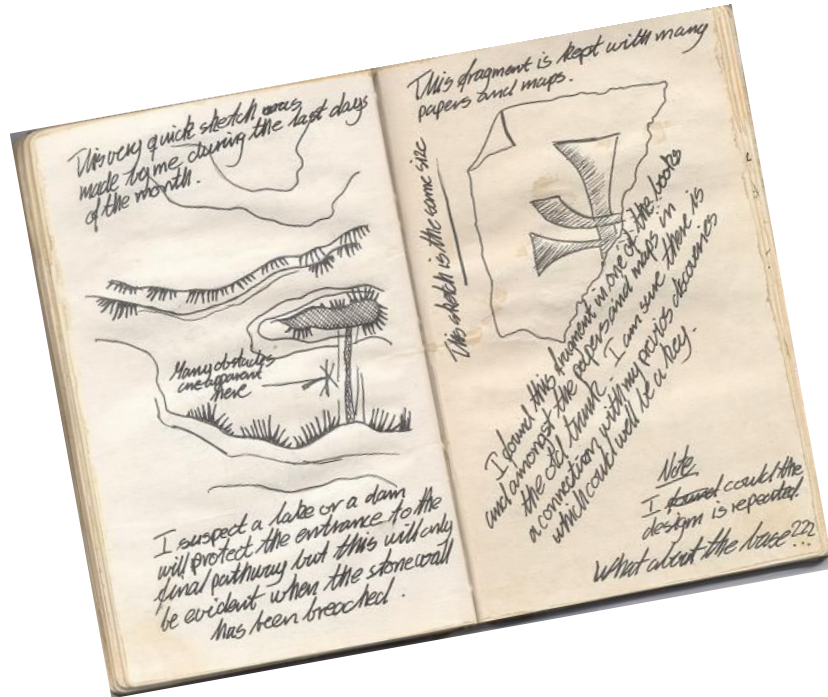 This very quick sketch was
made by me during the last days
of the month.
Many obstacles
are apparent
here
I suspect a lake or a dam
will protect the entrance to the
final pathway but this will only
be evident when the stone wall
has been breached.
This fragment is kept with many
papers and maps.
This sketch is the same size
I found this fragment in one of the books
and amongst the papers and maps in
the old trunk. I am sure there is
a connection with my previos discoveries
which could well be a key.
Note
I found could the
design is repeated.
What about the base???